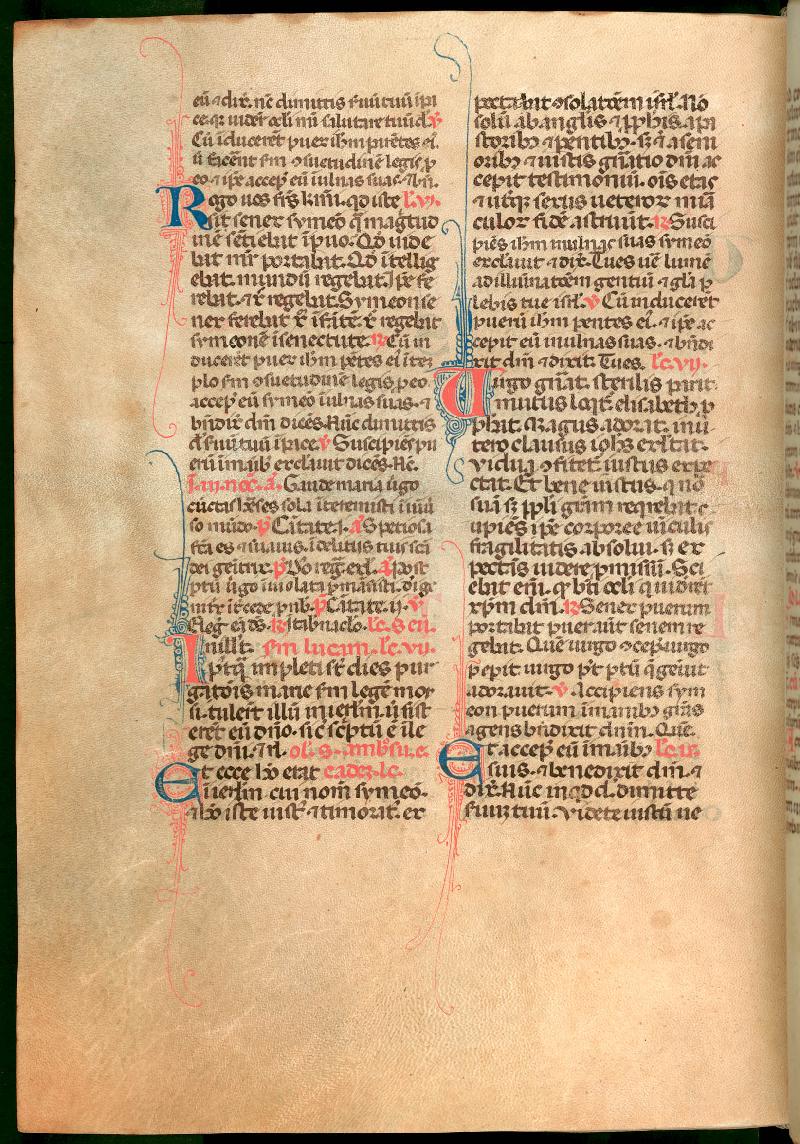 eū ⁊ dix̄. nc̄ dimittis s̄uū tuū ī pa
ce. q̄ uidēr̄ ocl̓i mī salutare tuū d. v̄
Cū īducerēt puer ihm̄ parētes ei.
ū facerēt sm̄ ɔsuetudinē legis p̄
eo ⁊ ip̄e accep̄ eū ī ulnas suas.
Rogo uos frs̄ km̄i. qd̓ iste lc̄. vi.
sit senex symeō q̄ magitud
inē
bat nr̄ portabat. Qd̓ ītellig
ebat. mundū regebat. Ip̄e fe
rebat. ⁊ regebat. Symeon se
nex ferebat x̄ īfātē. x̄ regebat
symeonē ī senectute. ꝶ Cū in
ducerēt puer ihm̄ parētes ei ī tē
plo sm̄ ɔsuetudinē legis p eo
accep̄ eū symeō ī ulnas suas. ⁊
bn̄dix̄ dm̄ dicēs. Nūc dimittis
d. s̄uū tuū ī pace. v̄ Suscipiēs pu
erū ī māib exclauit dicēs. Nc̄.
ī. iii. noc̄. a. Gaude maria ūgo
cūctas h̓eses sola ī teremisti ī uniū
so mūdo. p̄ Cātate. i. a Speciosa
fc̄a es ⁊ suauis. ī delitiis tuis scā
dei genitrix. p̄ Dn̄s reg. exl. a post
ptū ūgo īuiolata pmāsisti. d̓i ge
nitx̄ ītcede p nob. p̄ Cātate. ii. v̄
Reg. eads. ꝶ ī tabnaclo. lc̄. s̄ eū.
In illt̄. sm̄ lucam. lc̄. vii.
Pptq̄ impleti st̄ dies pur
gatōis marie sm̄ legē moy
si. tulert̄ illū ī ierlm̄. ū sist
eret eū dn̄o. sic̄ sc̄ptū ē ī le
ge dni. ⁊ rl̓. oł. s. ambsii. e.
Et ecce hō erat eadez. lc̄.
ī ierlm̄ cui nom̄ symeō.
⁊ hō iste iust̓ ⁊ timorat̓. ex
pectabat ɔsolatōem isrl̓. Nō
solū ab anglis ⁊ pphis. a pa
storibꝫ ⁊ pentibꝫ. sꝫ ⁊ a seni
oribꝫ ⁊ iustis gn̄atio dn̄i ac
cepit testimoniū. oīs etas
⁊ utq̄ꝫ sexus uetoꝝ mīa
culoꝝ fidē astruūt. ꝶ Susci
piēs ihm̄ in ulnas suas symeō
exclauit ⁊ dix̄. Tu es uē lumē
ad illuīatōem gentiū ⁊ gl̓a p
lebis tue isrl̓. v̄ Cū inducerēt
puerū ihm̄ pentes ei. ⁊ ip̄e ac
cepit eū in ulnas suas. ⁊ bn̄di
xit dm̄ ⁊ dixit. Tu es. lc̄. vii.
Uirgo gn̄at. sterilis parit.
mutus loq̄t̓. elisabeth p
phat. Magus adorat. in u
tero clausus iohs exl̓tat.
Uidua ɔfitet̓. iustus expe
ctat. Et bene iustus. q nō
suā sꝫ ppl̓i grām reqrebat c
upiēs ip̄e corporee uīculis
fragilitatis absolui. sꝫ ex
pectās uidere pmissū. Sci
ebat eī. q bt̄i ocl̓i qui uidet
xp̄m dn̄i. ꝶ Senex puerum
portabat puer aūt senem re
gebat. Quē uirgo ɔcep̄ uirgo
pepit uirgo p̄t ptū q̄ genuit
adorauit. v̄ Accipiens sym
eon puerum ī manibꝫ gr̄as
agens bn̄dixit dnm̄. Quē.
Et accep̄ eū ī māibꝫ lc̄. ix.
suis. ⁊ benedixit dm̄. ⁊
dix̄. Nūc inq̄d d. dimitte
s̄uū tuū. Videte iustū ue